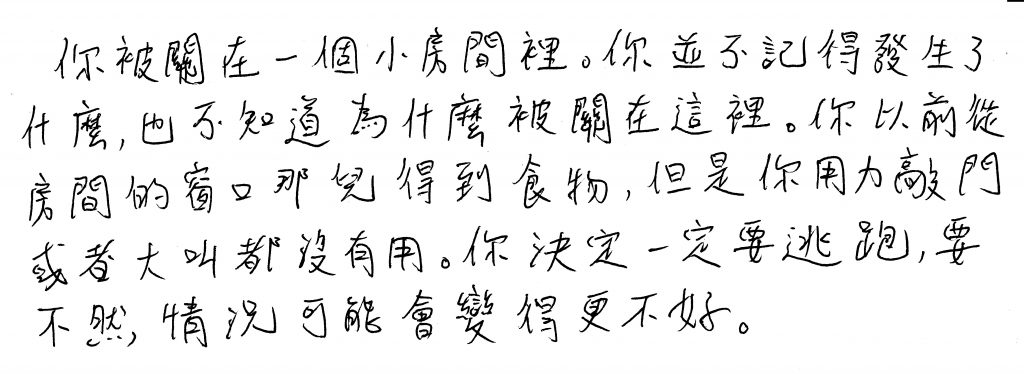 你被關在一個小房間裡。你並不記得發生了
什麼,也不知道為什麼被關在這裡。你以前從
房間的窗口那兒得到食物,但是你用力敲門
或者大叫都沒有用。你決定一定要逃跑,要
不然,情況可能會變得更不好。